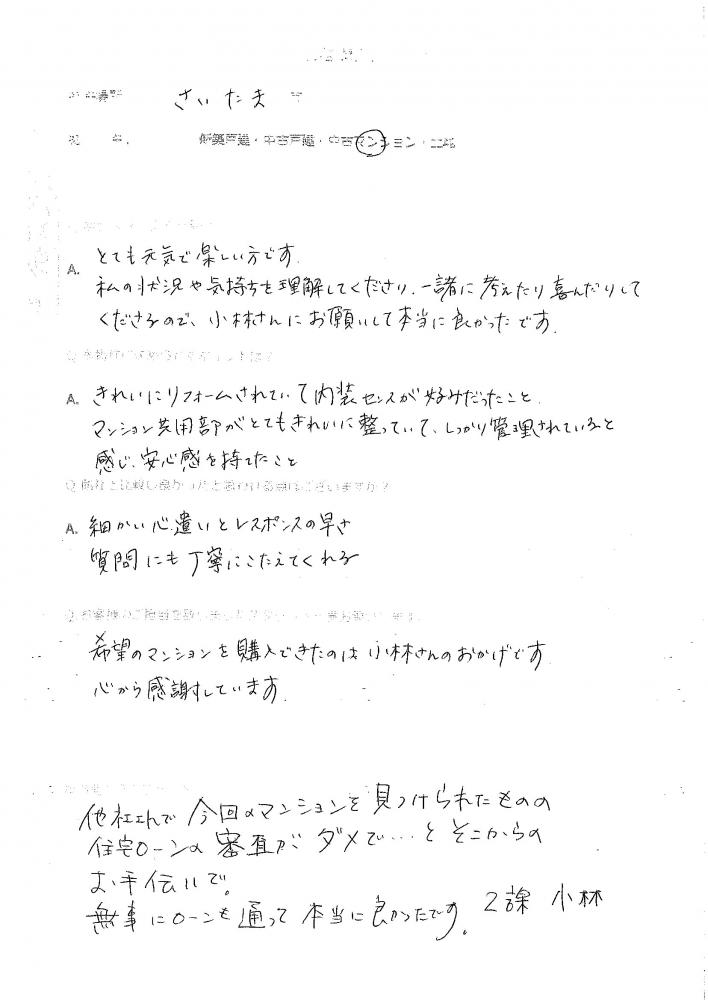 さいたま 市
新築戸建・中古戸建・中古マンション・土地
A. とても元気で楽しい方です.
私の状況や気持ちを理解してくださり、一緒に考えたり喜んだりして
くださるので、小林さんにお願いして本当に良かったです.
A. きれいにリフォームされていて内装センスが好みだったこと.
マンション共用部がとてもきれいに整っていて、しっかり管理されていると
感じ、安心感を持てたこと
A. 細かい心遣いとレスポンスの早さ
質問にも丁寧にこたえてくれる
希望のマンションを購入できたのは小林さんのおかげです
心から感謝しています.
他社さんで今回のマンションを見つけられたものの
住宅ローンの審査がダメで…とそこからの
お手伝いで。
無事にローンも通って本当に良かったです。 2課 小林